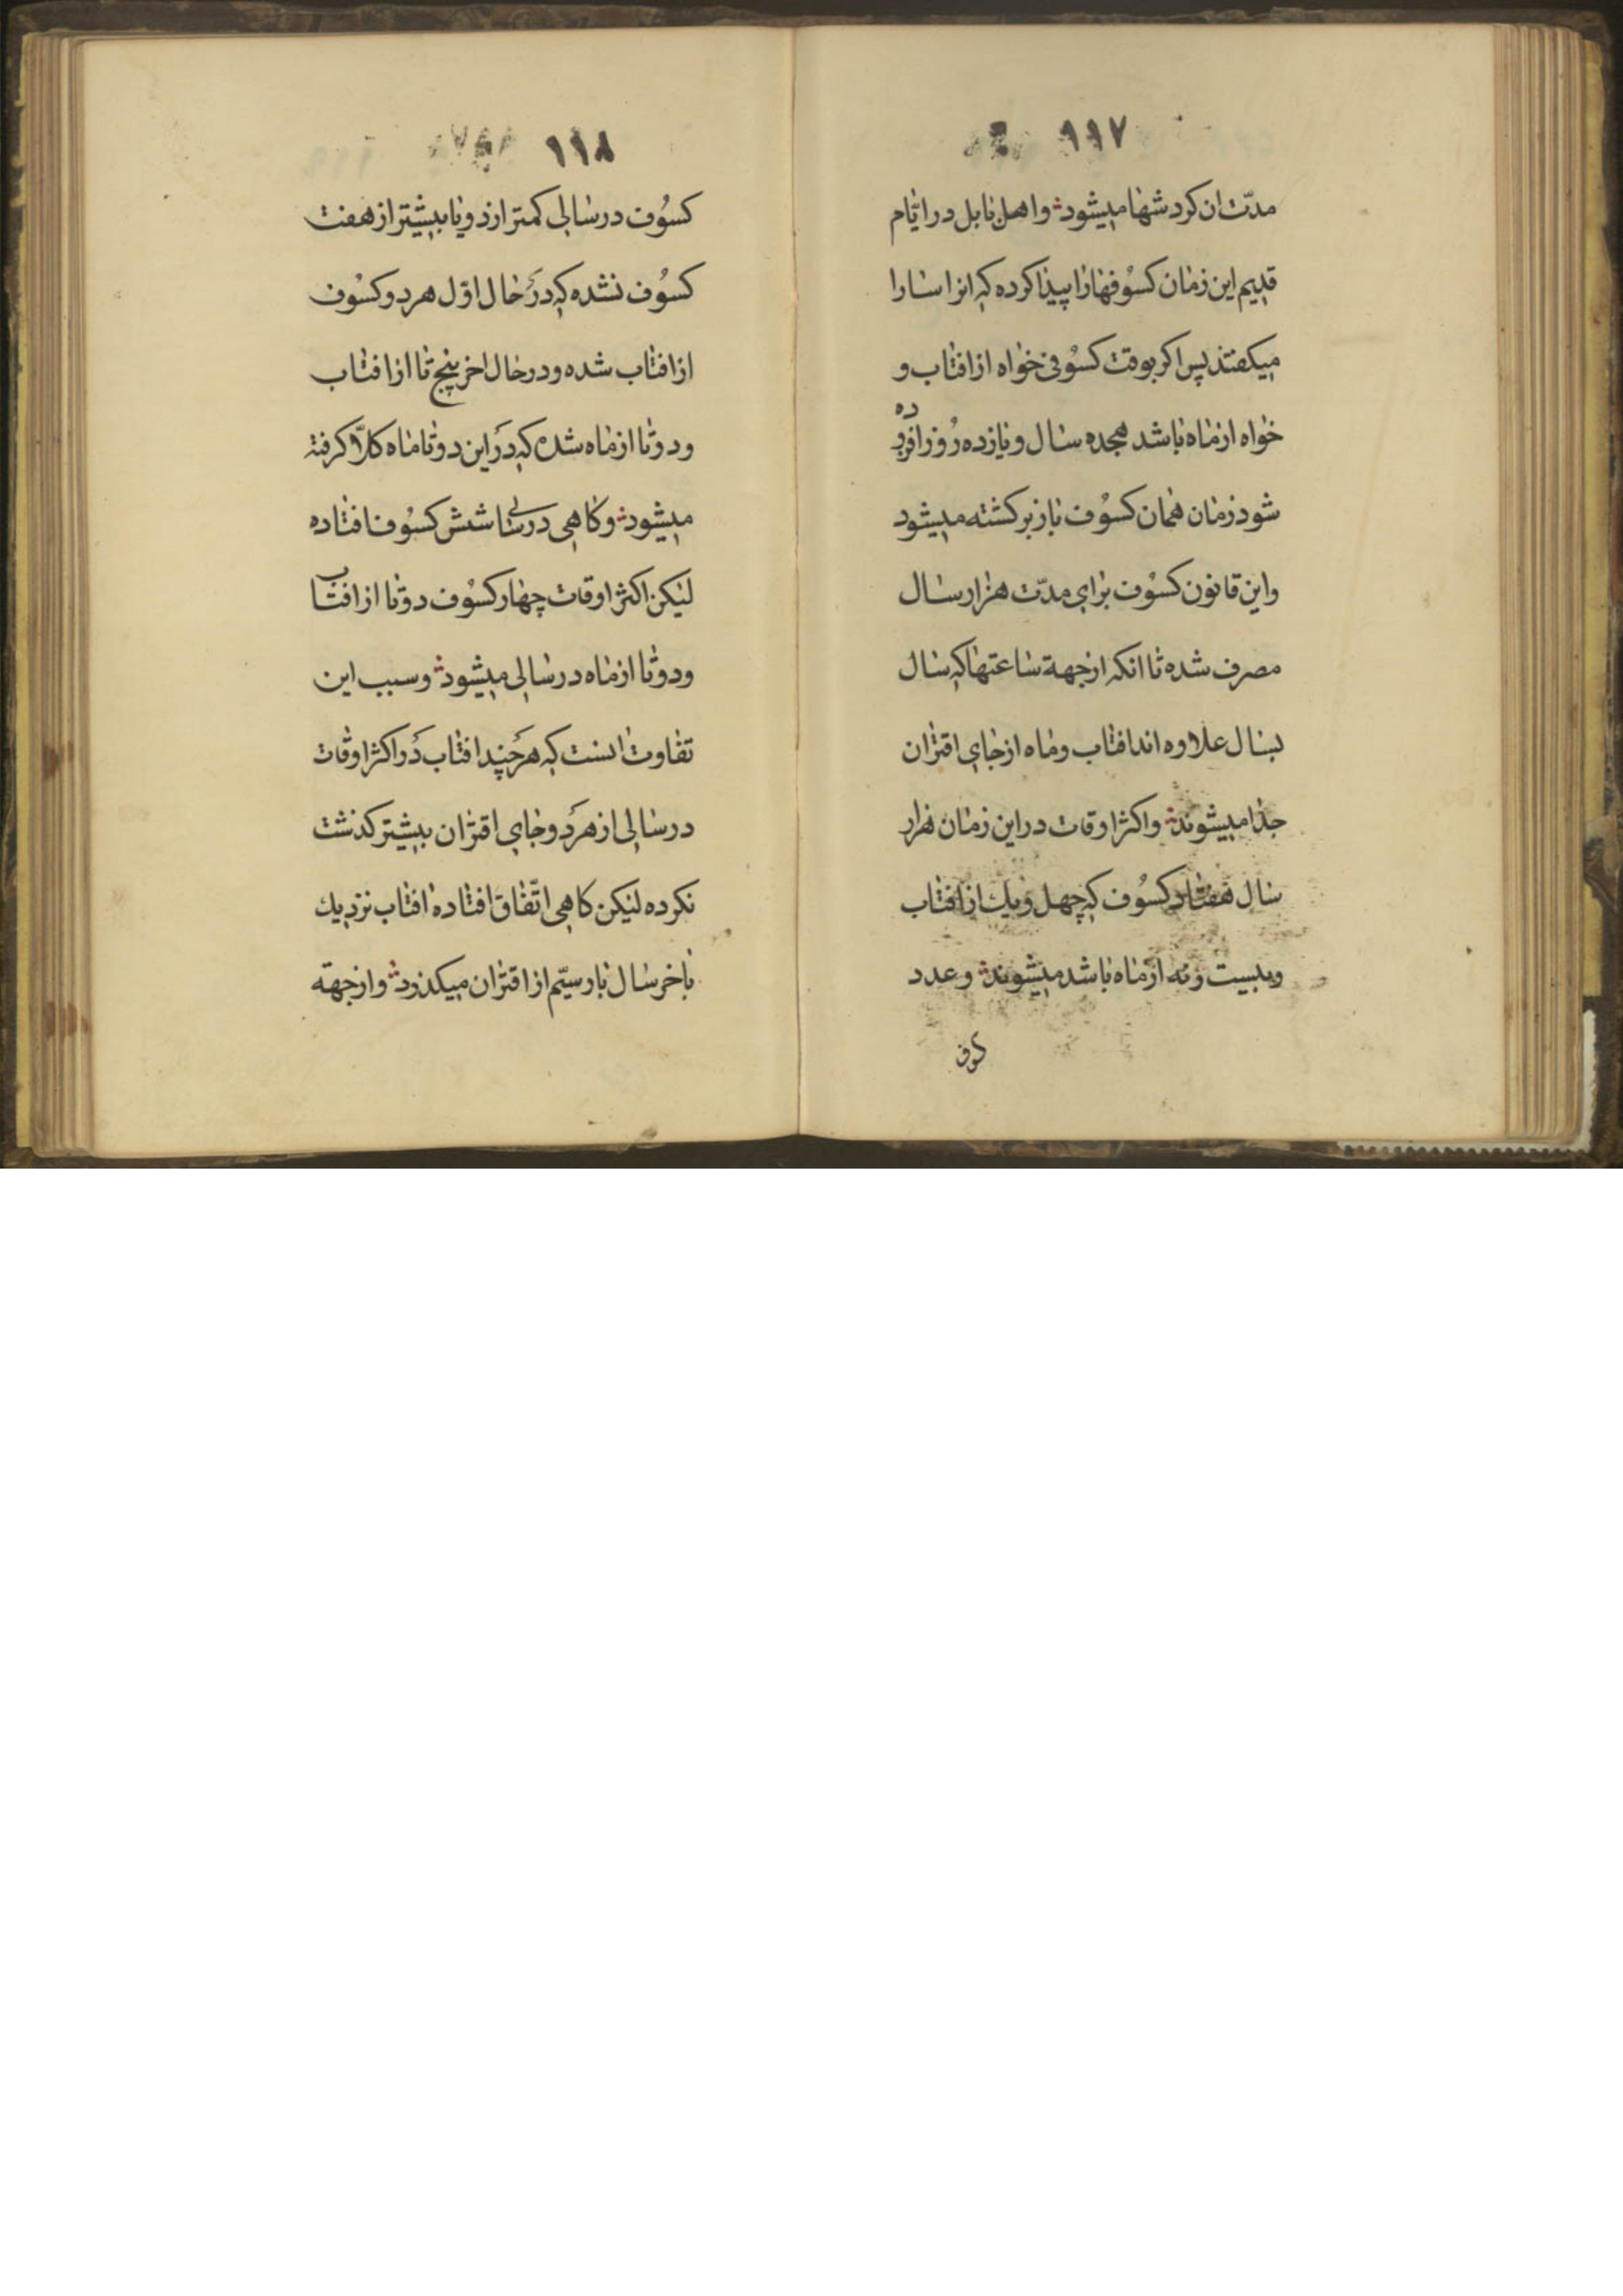 ۱۱۷
مدّت ان کردشها میشود و اهل بابل در ایّام
قدیم این زمان کسُوفها را پیدا کرده که انرا سارا
میکفتند پس اکر بوقت کسُوفی خواه از افتاب و
خواه از ماه باشد هجده سال و یازده رُوز افزوده
شود زمان همان کسُوف باز برکشته میشود
و این قانون کسُوف برای مدّت هزار سال
مصرف شده تا انکه از جهة ساعتها که سال
بسال علاوه اند افتاب و ماه از جای اقتران
جدا میشوند و اکثر اوقات در این زمان هزار
سال هفتاد کسُوف که چهل و یك از افتاب
و بیست و نه از ماه باشد میشوند و عدد
۱۱۸
کسُوف در سالی کمتر از دو یا بیشتر از هفت
کسُوف نشده که در حال اوّل هر دو کسُوف
از افتاب شده و در حال اخر پنج تا از افتاب
و دو تا از ماه شده که در این دو تا ماه کلّا کرفته
میشود و کاهی در سالی شش کسُوف افتاده
لیکن اکثر اوقات چهار کسُوف دو تا از افتاب
و دو تا از ماه در سالی میشود و سبب این
تفاوت انست که هر چند افتاب در اکثر اوقات
در سالی از هر دو جای اقتران بیشتر کذشت
نکرده لیکن کاهی اتّفاق افتاده افتاب نزدیك
باخر سال بار سیّم از اقتران میکذرد و از جهة